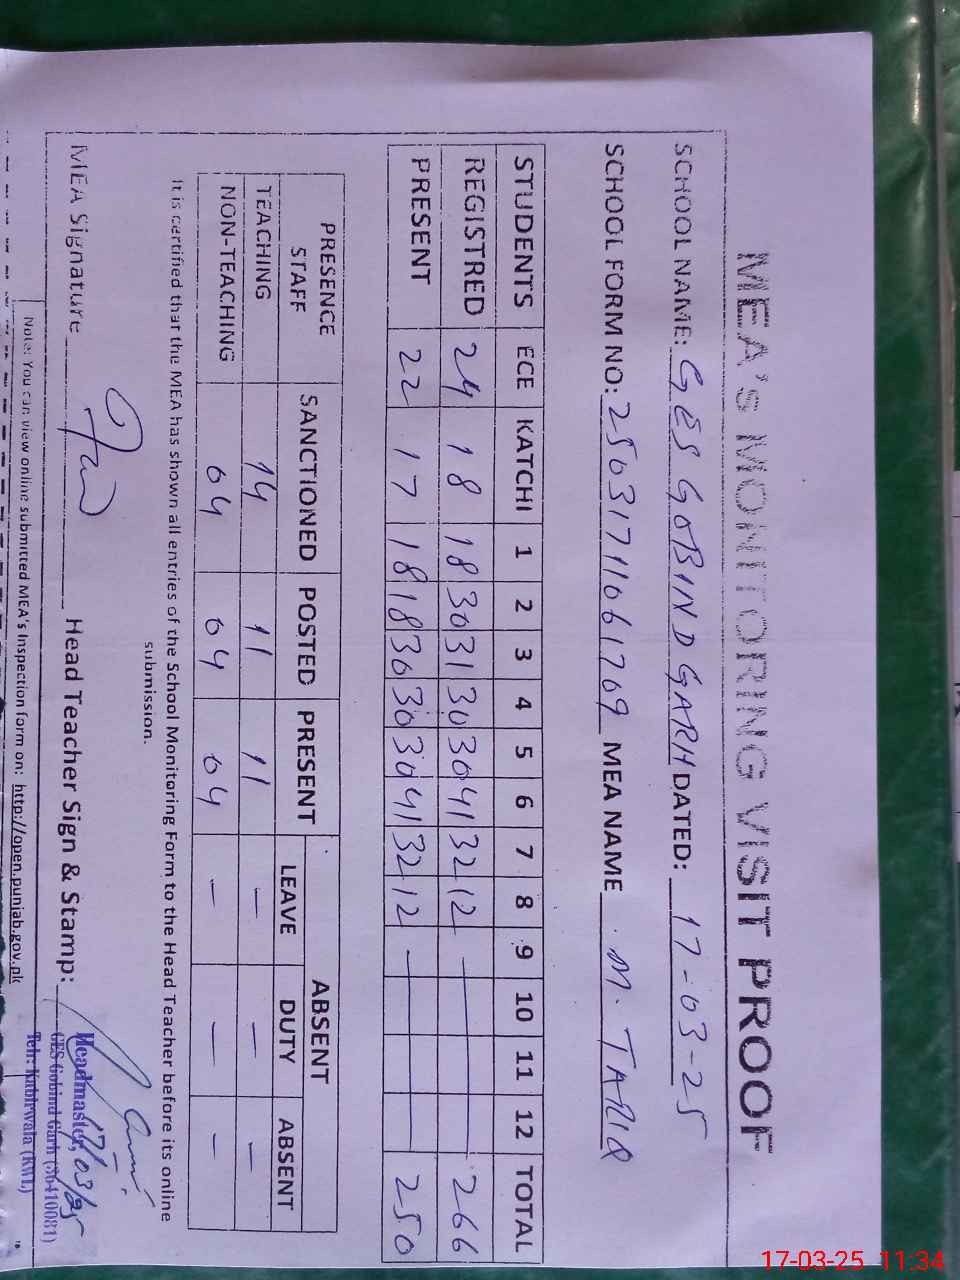 MEA'S MONITORING VISIT PROOF
SCHOOL NAME: GES GOBIND GARH DATED: 17-03-25
SCHOOL FORM NO: 2503171106 1709 MEA NAME M. TARIQ
STUDENTS ECE KATCHI 1 2 3 4 5 6 7 8 9 10 11 12 TOTAL
REGISTRED 24 18 18 30 31 30 30 41 32 12 — 266
PRESENT 22 17 18 18 30 30 30 41 32 12 — 250
PRESENCE STAFF SANCTIONED POSTED PRESENT ABSENT
LEAVE DUTY ABSENT
TEACHING 14 11 11 — — —
NON-TEACHING 04 04 04 — — —
It is certified that the MEA has shown all entries of the School Monitoring Form to the Head Teacher before its online
submission.
MEA Signature Head Teacher Sign & Stamp:
17/03/25
Headmaster,
GES Gobind Garh (36410081)
Teh: Kabirwala (KWL)
Note: You can view online submitted MEA's Inspection form on: http://open.punjab.gov.pk
17-03-25 11:34